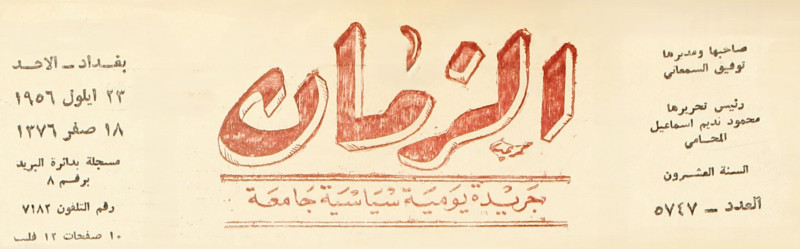 صاحبها ومديرها
توفيق السمعاني
رئيس تحريرها
محمود نديم اسماعيل
المحامي
السنة العشرون
العدد ــ ٥٧٤٧
الزمان
جريدة يومية سياسية جامعة
بغداد ــ الاحد
٢٣ ايلول ١٩٥٦
١٨ صفر ١٣٧٦
مسجلة بدائرة البريد
برقم ٨
رقم التلفون ٧١٨٢
١٠ صفحات ١٢ فلس